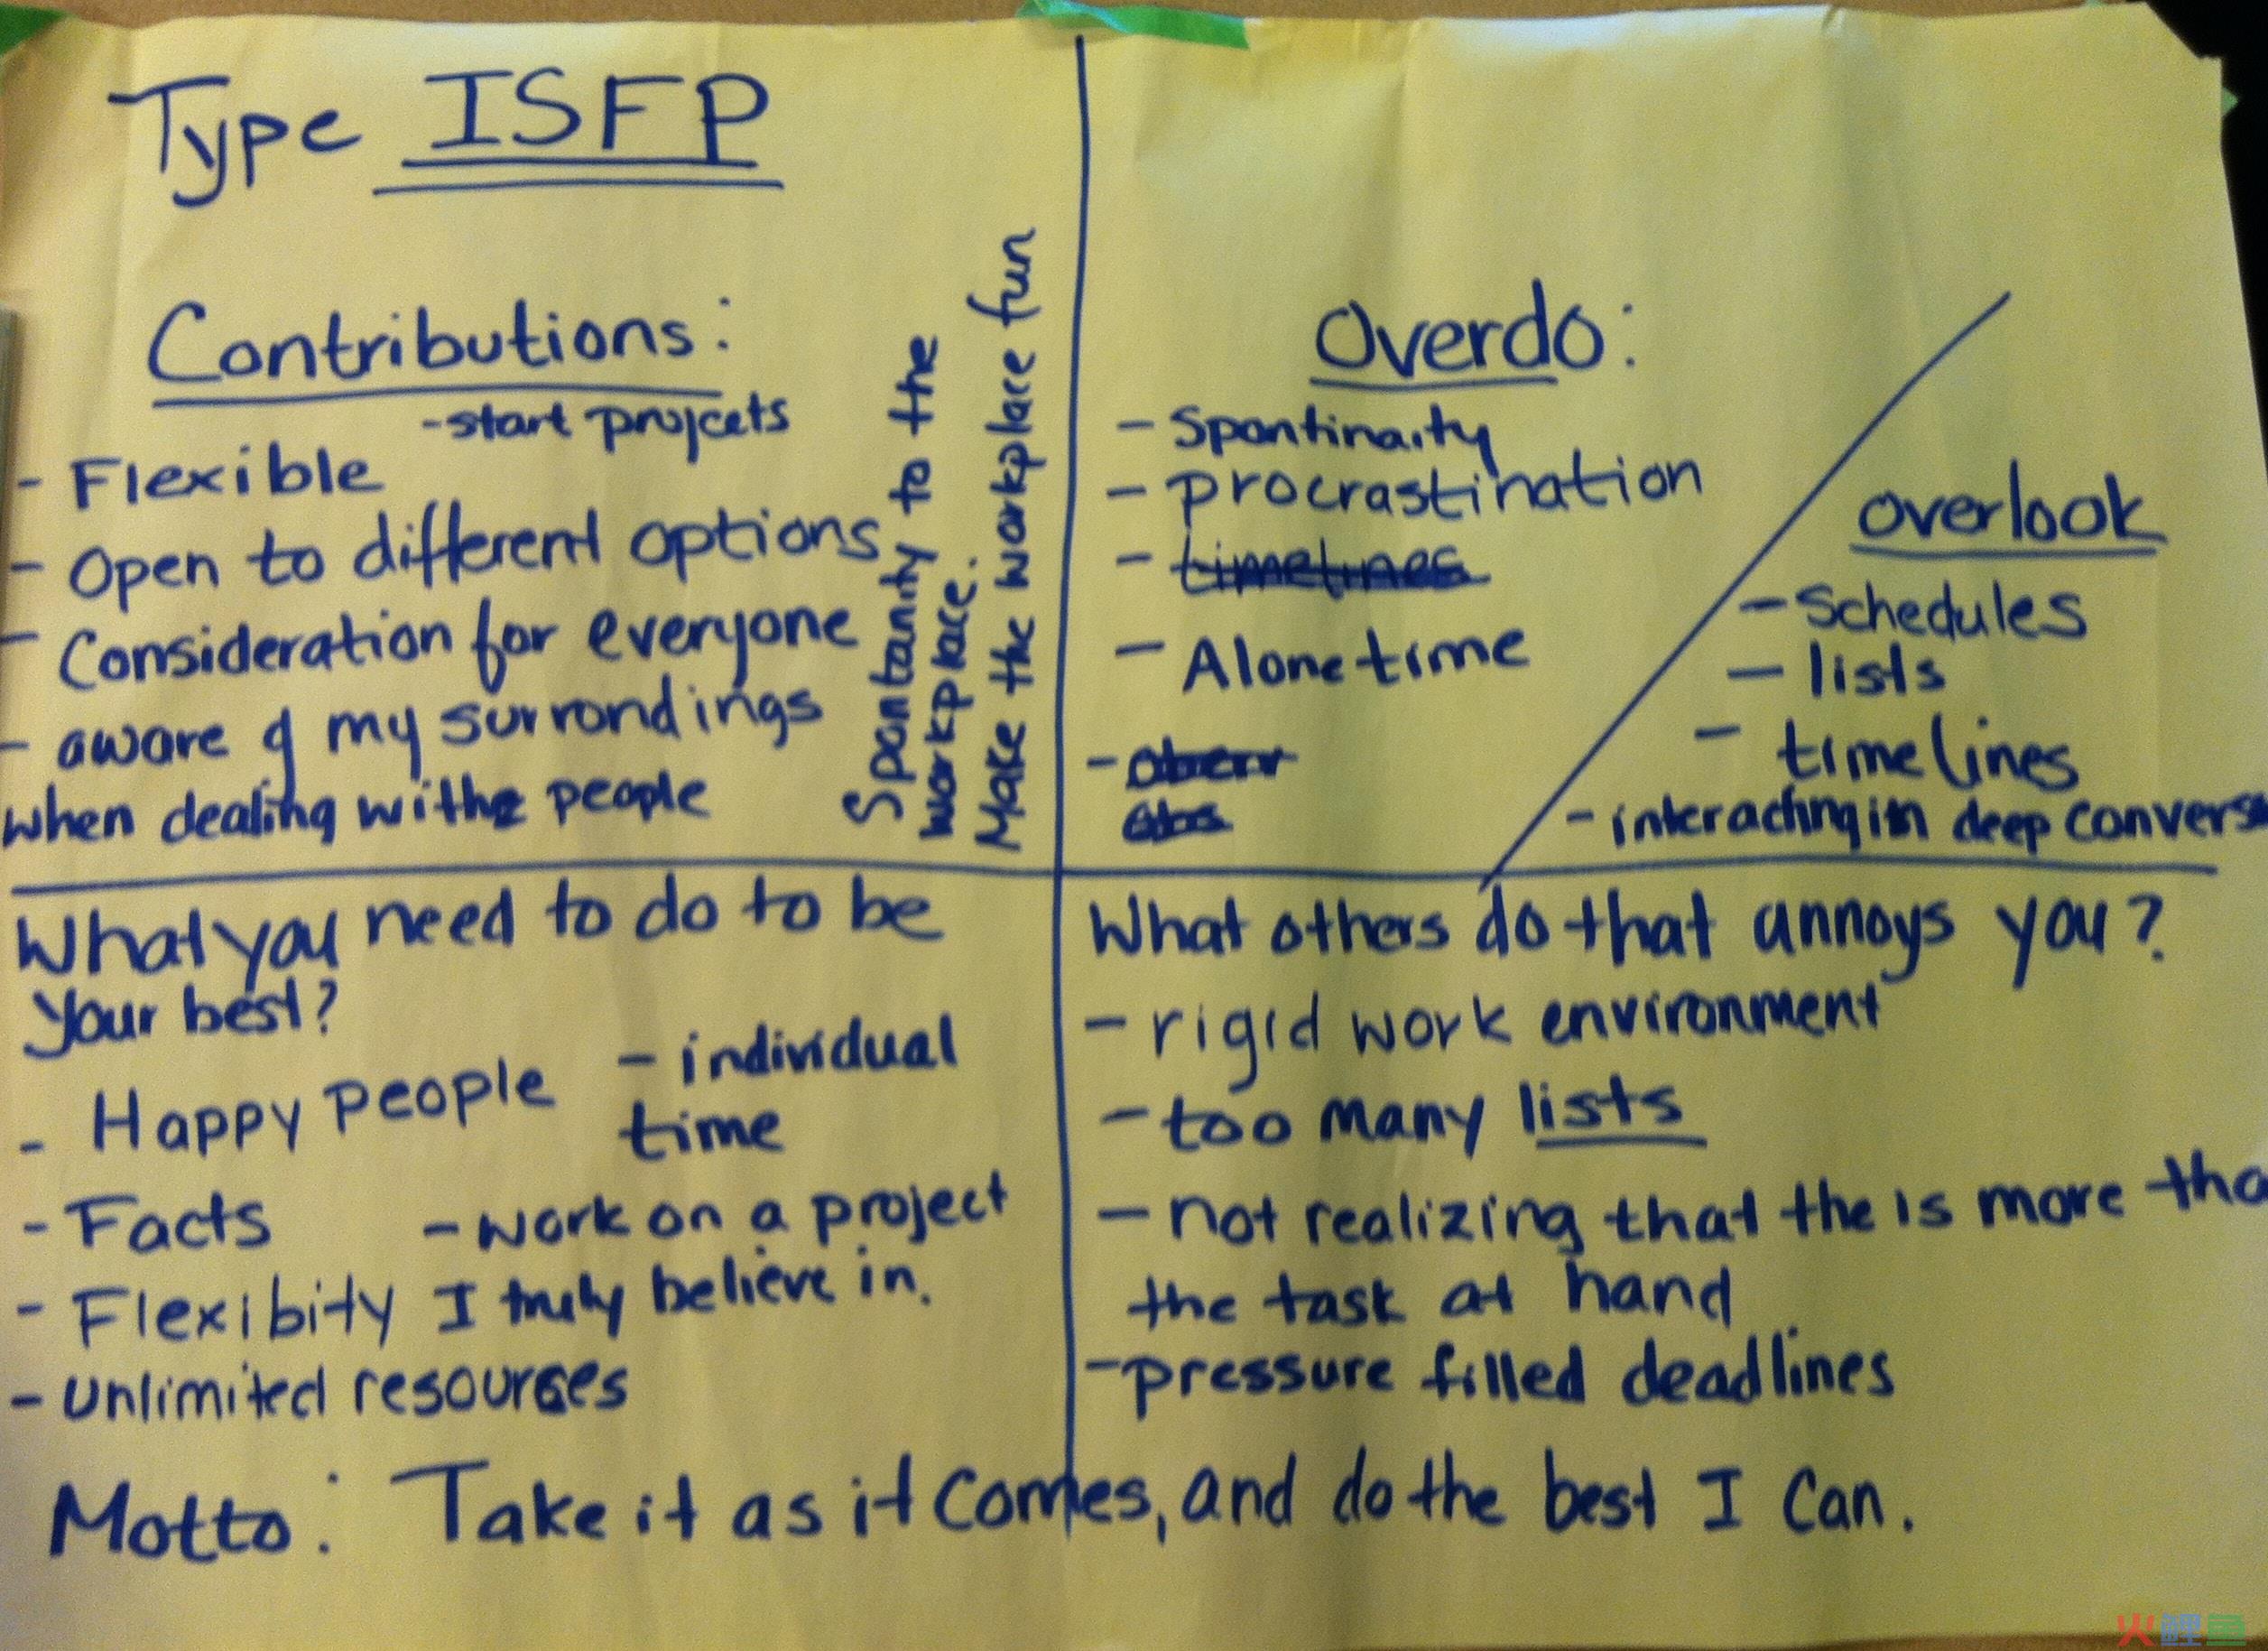 Type ISFP
Contributions:
-start projcets
- Flexible
- Open to different options
- Consideration for everyone
- aware of my surrondings
when dealing withe people
Spontanity to the
workplace.
Make the workplace fun
Overdo:
- Spontinaity
- procrastination
- timelines
- Alone time
overlook
- Schedules
- lists
- timelines
- interacting in deep convers
What you need to do to be
your best?
- Happy people
- individual
time
- Facts
- work on a project
I truly believe in.
- Flexibity
- unlimited resourses
What others do that annoys you?
- rigid work environment
- too many lists
- not realizing that the is more tha
the task at hand
- pressure filled deadlines
Motto: Take it as it comes, and do the best I can.
火鲤鱼